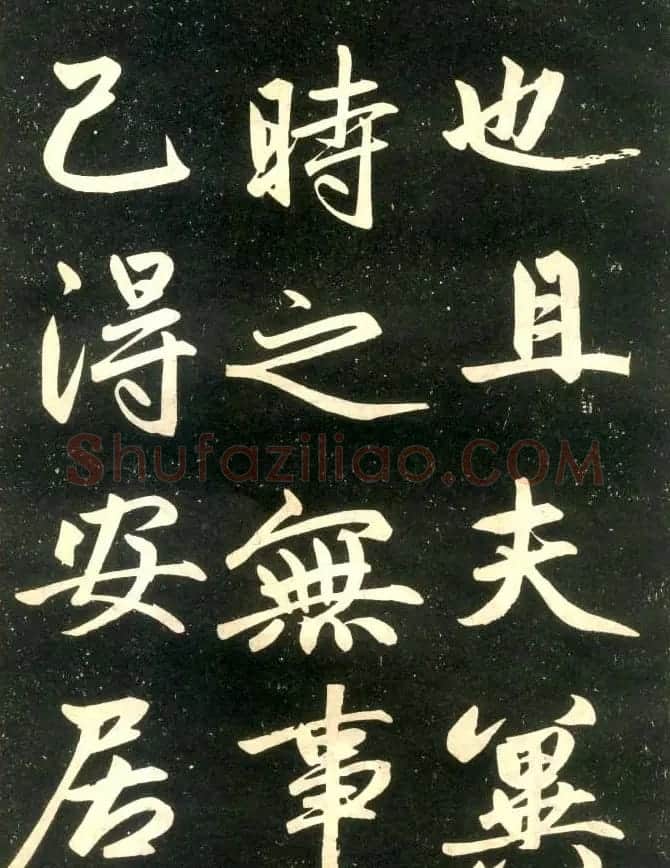 也且夫冀
時之無事
己得安居
Shufaziliao.COM